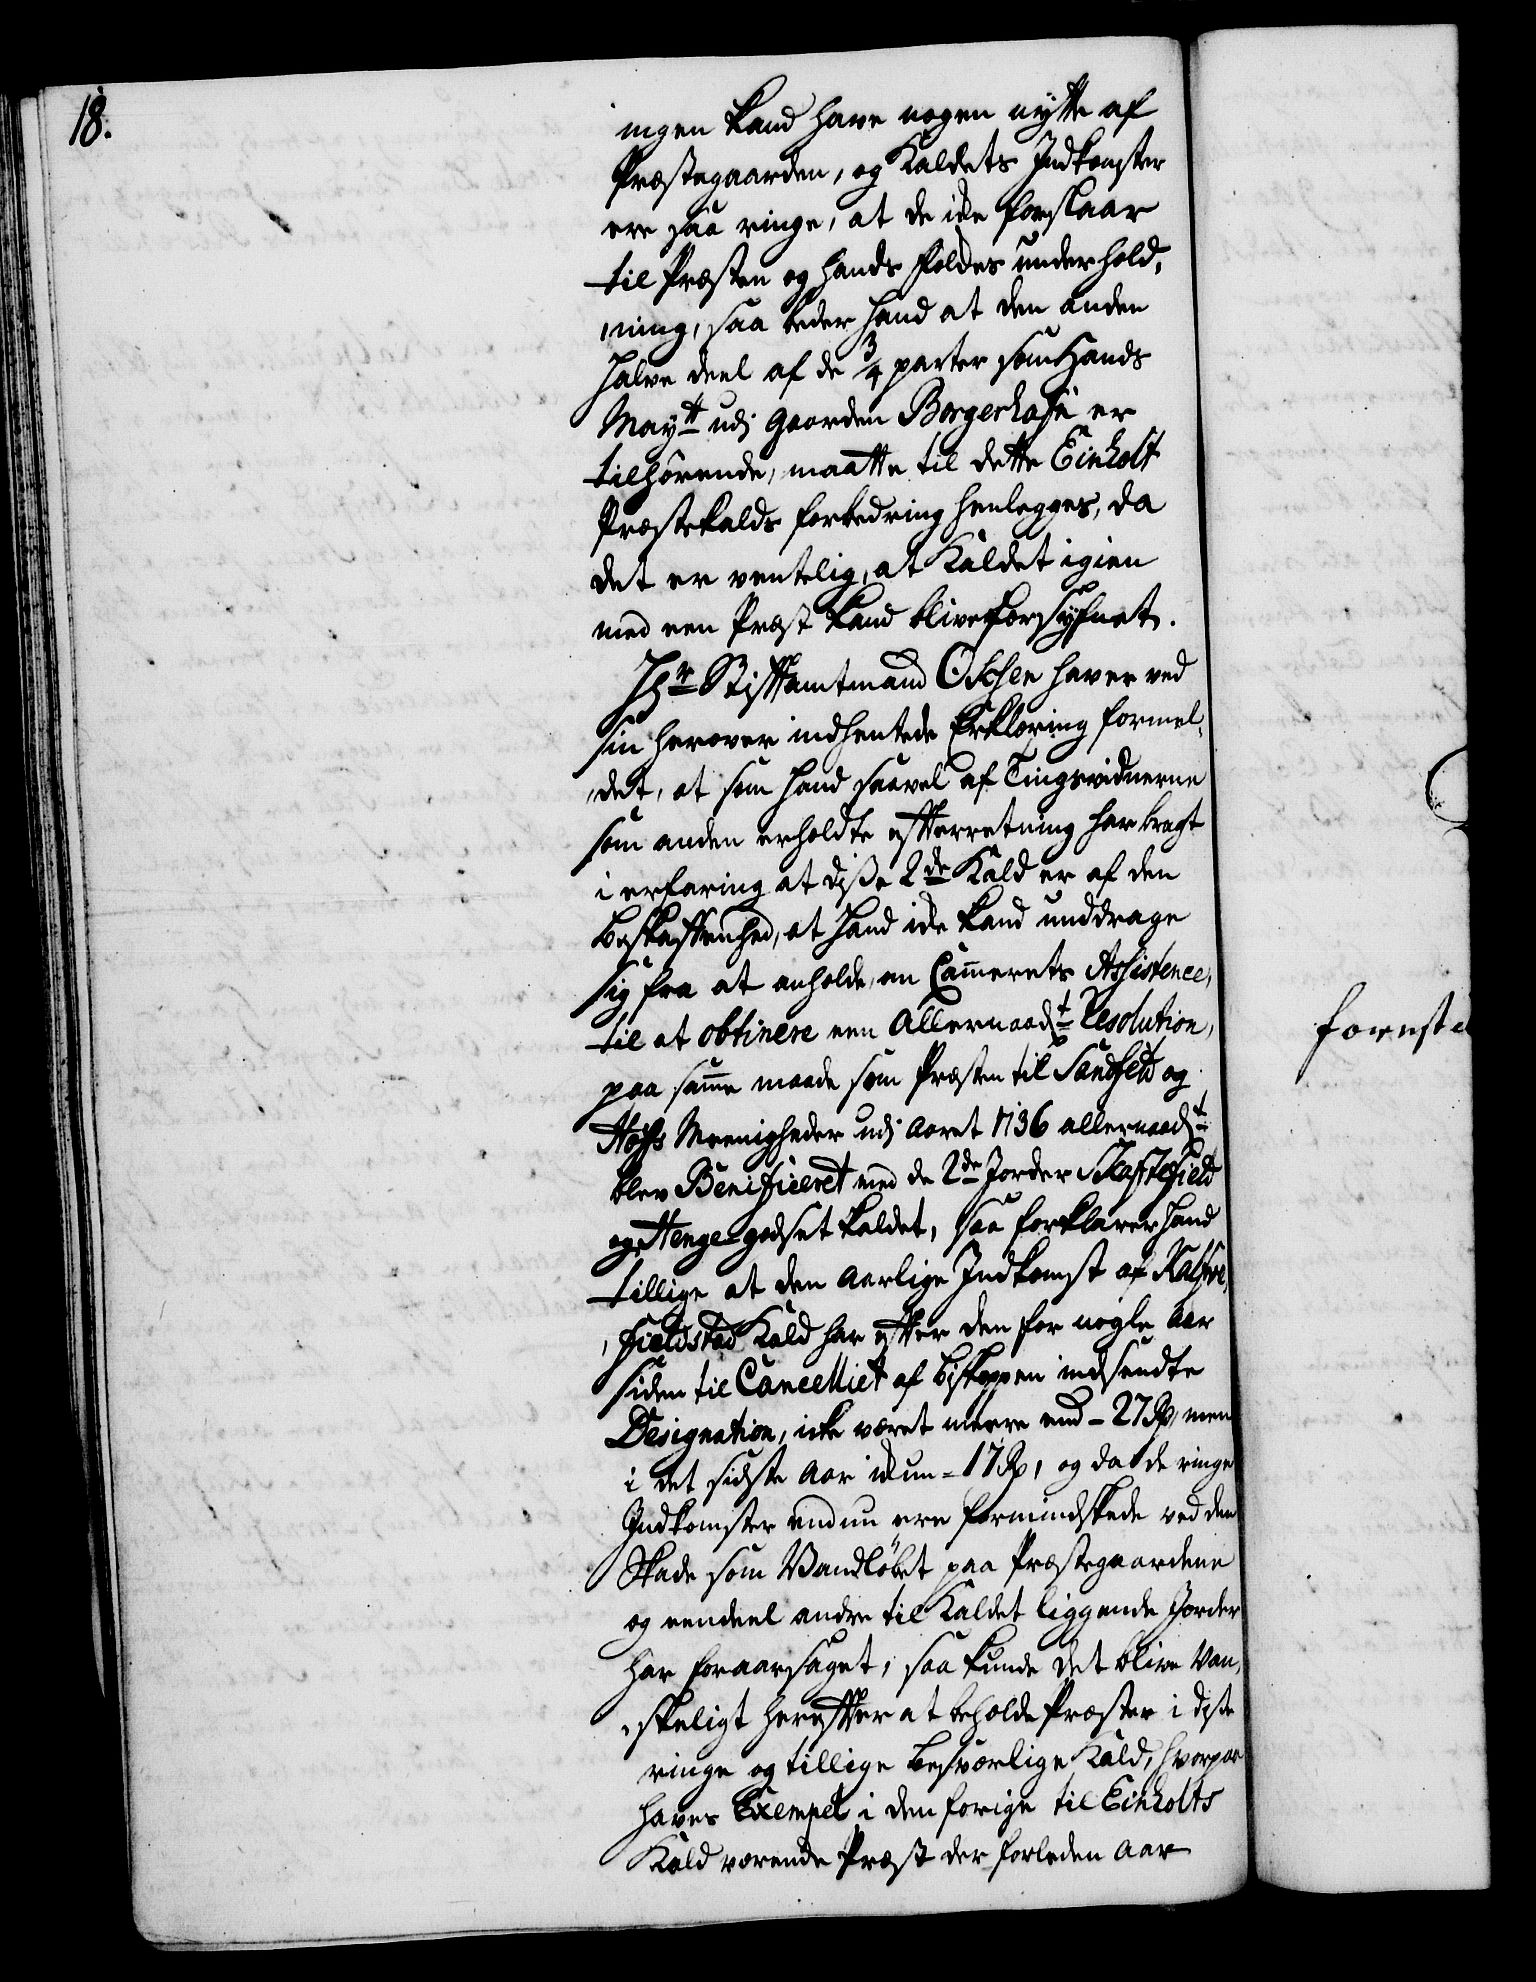 18.
ingen kand have nogen nytte af
Præstegaarden, og Kaldets Indkomster
ere saa ringe, at de icke forslaar
til Præsten og hands Folckes underhold,
,ning, saa beder hand at den anden
halve deel af de 3/4 parter som Hands
Mayt udj gaarden Borgerhafn er
tilhørende, maatte til dette Einholt
Præstekalds forbedring henlegges, da
det er ventelig, at Kaldet igien
med een Præst kand blive forsyhnet.
Hr Stiftamtmand Ochsen haver ved
sin herover indhentede Erklæring formel,
,det, at som hand saavel af Tingsvidnerne
som anden erholdte efterretning har bragt
i erfaring at disse 2de Kald er af den
beskaffenhed, at hand icke kand unddrage
sig fra at anholde om Cammerets Assistence,
til at obtinere een Allernaadt Resolution,
paa samme maade som Præsten til Sandfeld og
Hoffs Meenigheder udj aaret 1736 allernaadt
blev Benificeret med de 2de Jorder Skaftefield
og Henge-godset kaldet, saa forklarer hand
tillige at den aarlige Indkomst af Kalfve,
,fieldstad Kald har efter den for nogle Aar
siden til Cancelliet af biskoppen indsendte
Designation, icke været meere end - 27 Rd, men
i det sidste Aar ickun = 17 Rd, og da de ringe
Indkomster endnu ere formindskede ved den
Skade som Vandløbet paa Præstegaardene
og eendeel andre til Kaldet liggende Jorder
har foraarsaget, saa kunde det blive Van,
,skeligt herefter at beholde Præster i disse
ringe og tillige besværlige Kald, hvorpaa
haves Exempel i den forige til Einholts
Kald værende Præst der forleden Aar